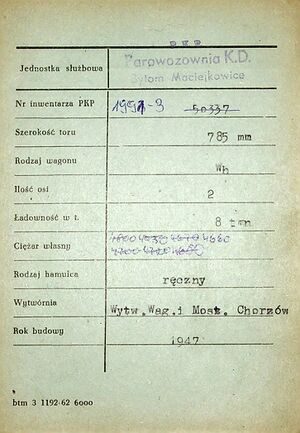 PKP
Jednostka służbowa Parowozownia K.D.
Bytom Maciejkowice
Nr inwentarza PKP 1991-3 50337
Szerokość toru 785 mm
Rodzaj wagonu Wh
Ilość osi 2
Ładowność w t. 8 ton
Ciężar własny 4660
Rodzaj hamulca ręczny
Wytwórnia Wytw. Wag. i Most. Chorzów
Rok budowy 1947
btm 3 1192-62 6000